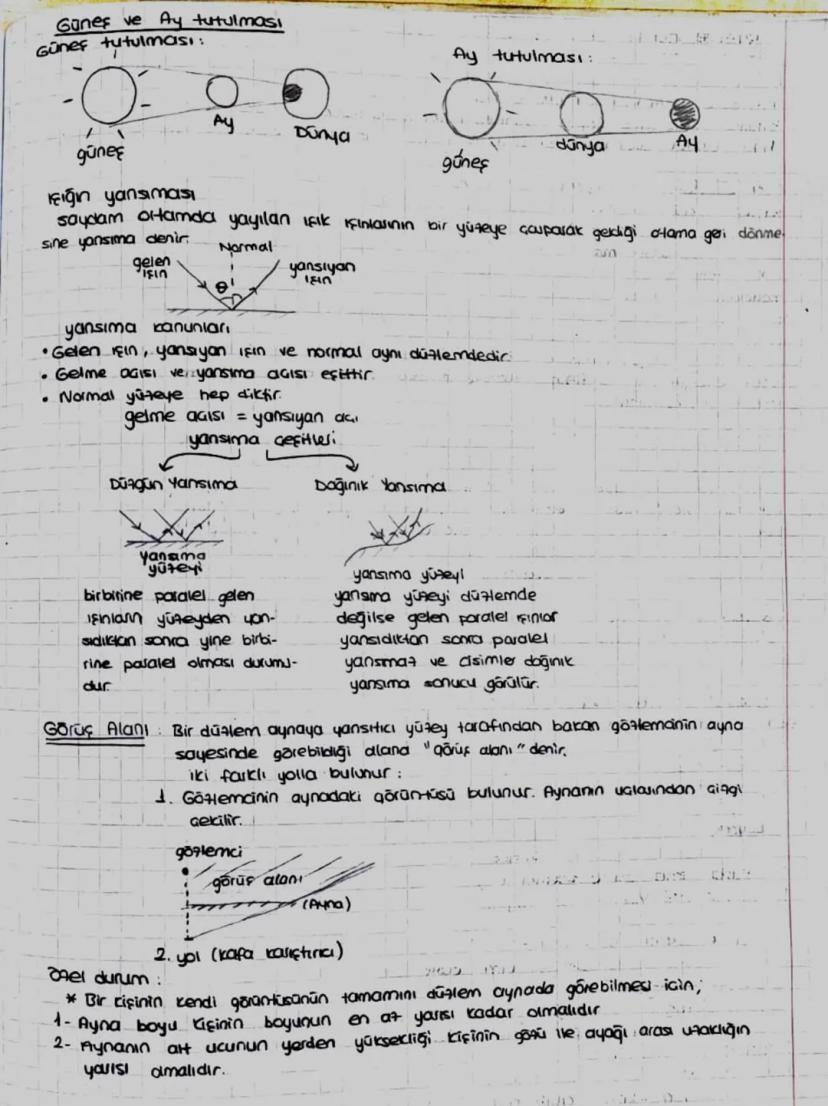 Güneş ve Ay tutulması
Güneş tutulması:
Ay tutulması:
güneş
Ay
Dünya
güneş
dünya
Ay
ışığın yansıması
saydam ortamda yayılan ışık ışınlarının bir yüzeye çarparak geldiği ortama geri dönme-
sine yansıma denir.
Normal
gelen
ışın
θ
yansıyan
ışın
yansıma kanunları
• Gelen ışın, yansıyan ışın ve normal aynı düzlemdedir.
• Gelme açısı ve yansıma açısı eşittir.
• Normal yüzeye hep diktir.
gelme açısı = yansıyan açı
yansıma çeşitleri
Düzgün Yansıma
Dağınık Yansıma
Yansıma
yüzeyi
birbirine paralel gelen
ışınların yüzeyden yan-
sıdıktan sonra yine birbi-
rine paralel olması durumu-
dur.
yansıma yüzeyi
yansıma yüzeyi düzlemde
değilse gelen paralel ışınlar
yansıdıktan sonra paralel
yansımaz ve cisimler dağınık
yansıma sonucu görülür.
Görüş Alanı: Bir düzlem aynaya yansıtıcı yüzey tarafından bakan gözlemcinin ayna
sayesinde görebildiği alana "görüş alanı" denir.
iki farklı yolla bulunur:
1. Gözlemcinin aynadaki görüntüsü bulunur. Aynanın uçlarından çizgi
çekilir.
gözlemci
görüş alanı
(Ayna)
2. yol (kafa karıştırıcı)
Özel durum:
* Bir kişinin kendi görüntüsünün tamamını düzlem aynada görebilmesi için;
1- Ayna boyu kişinin boyunun en az yarısı kadar olmalıdır
2- Aynanın alt ucunun yerden yüksekliği kişinin gözü ile ayağı arası uzaklığın
yarısı olmalıdır.